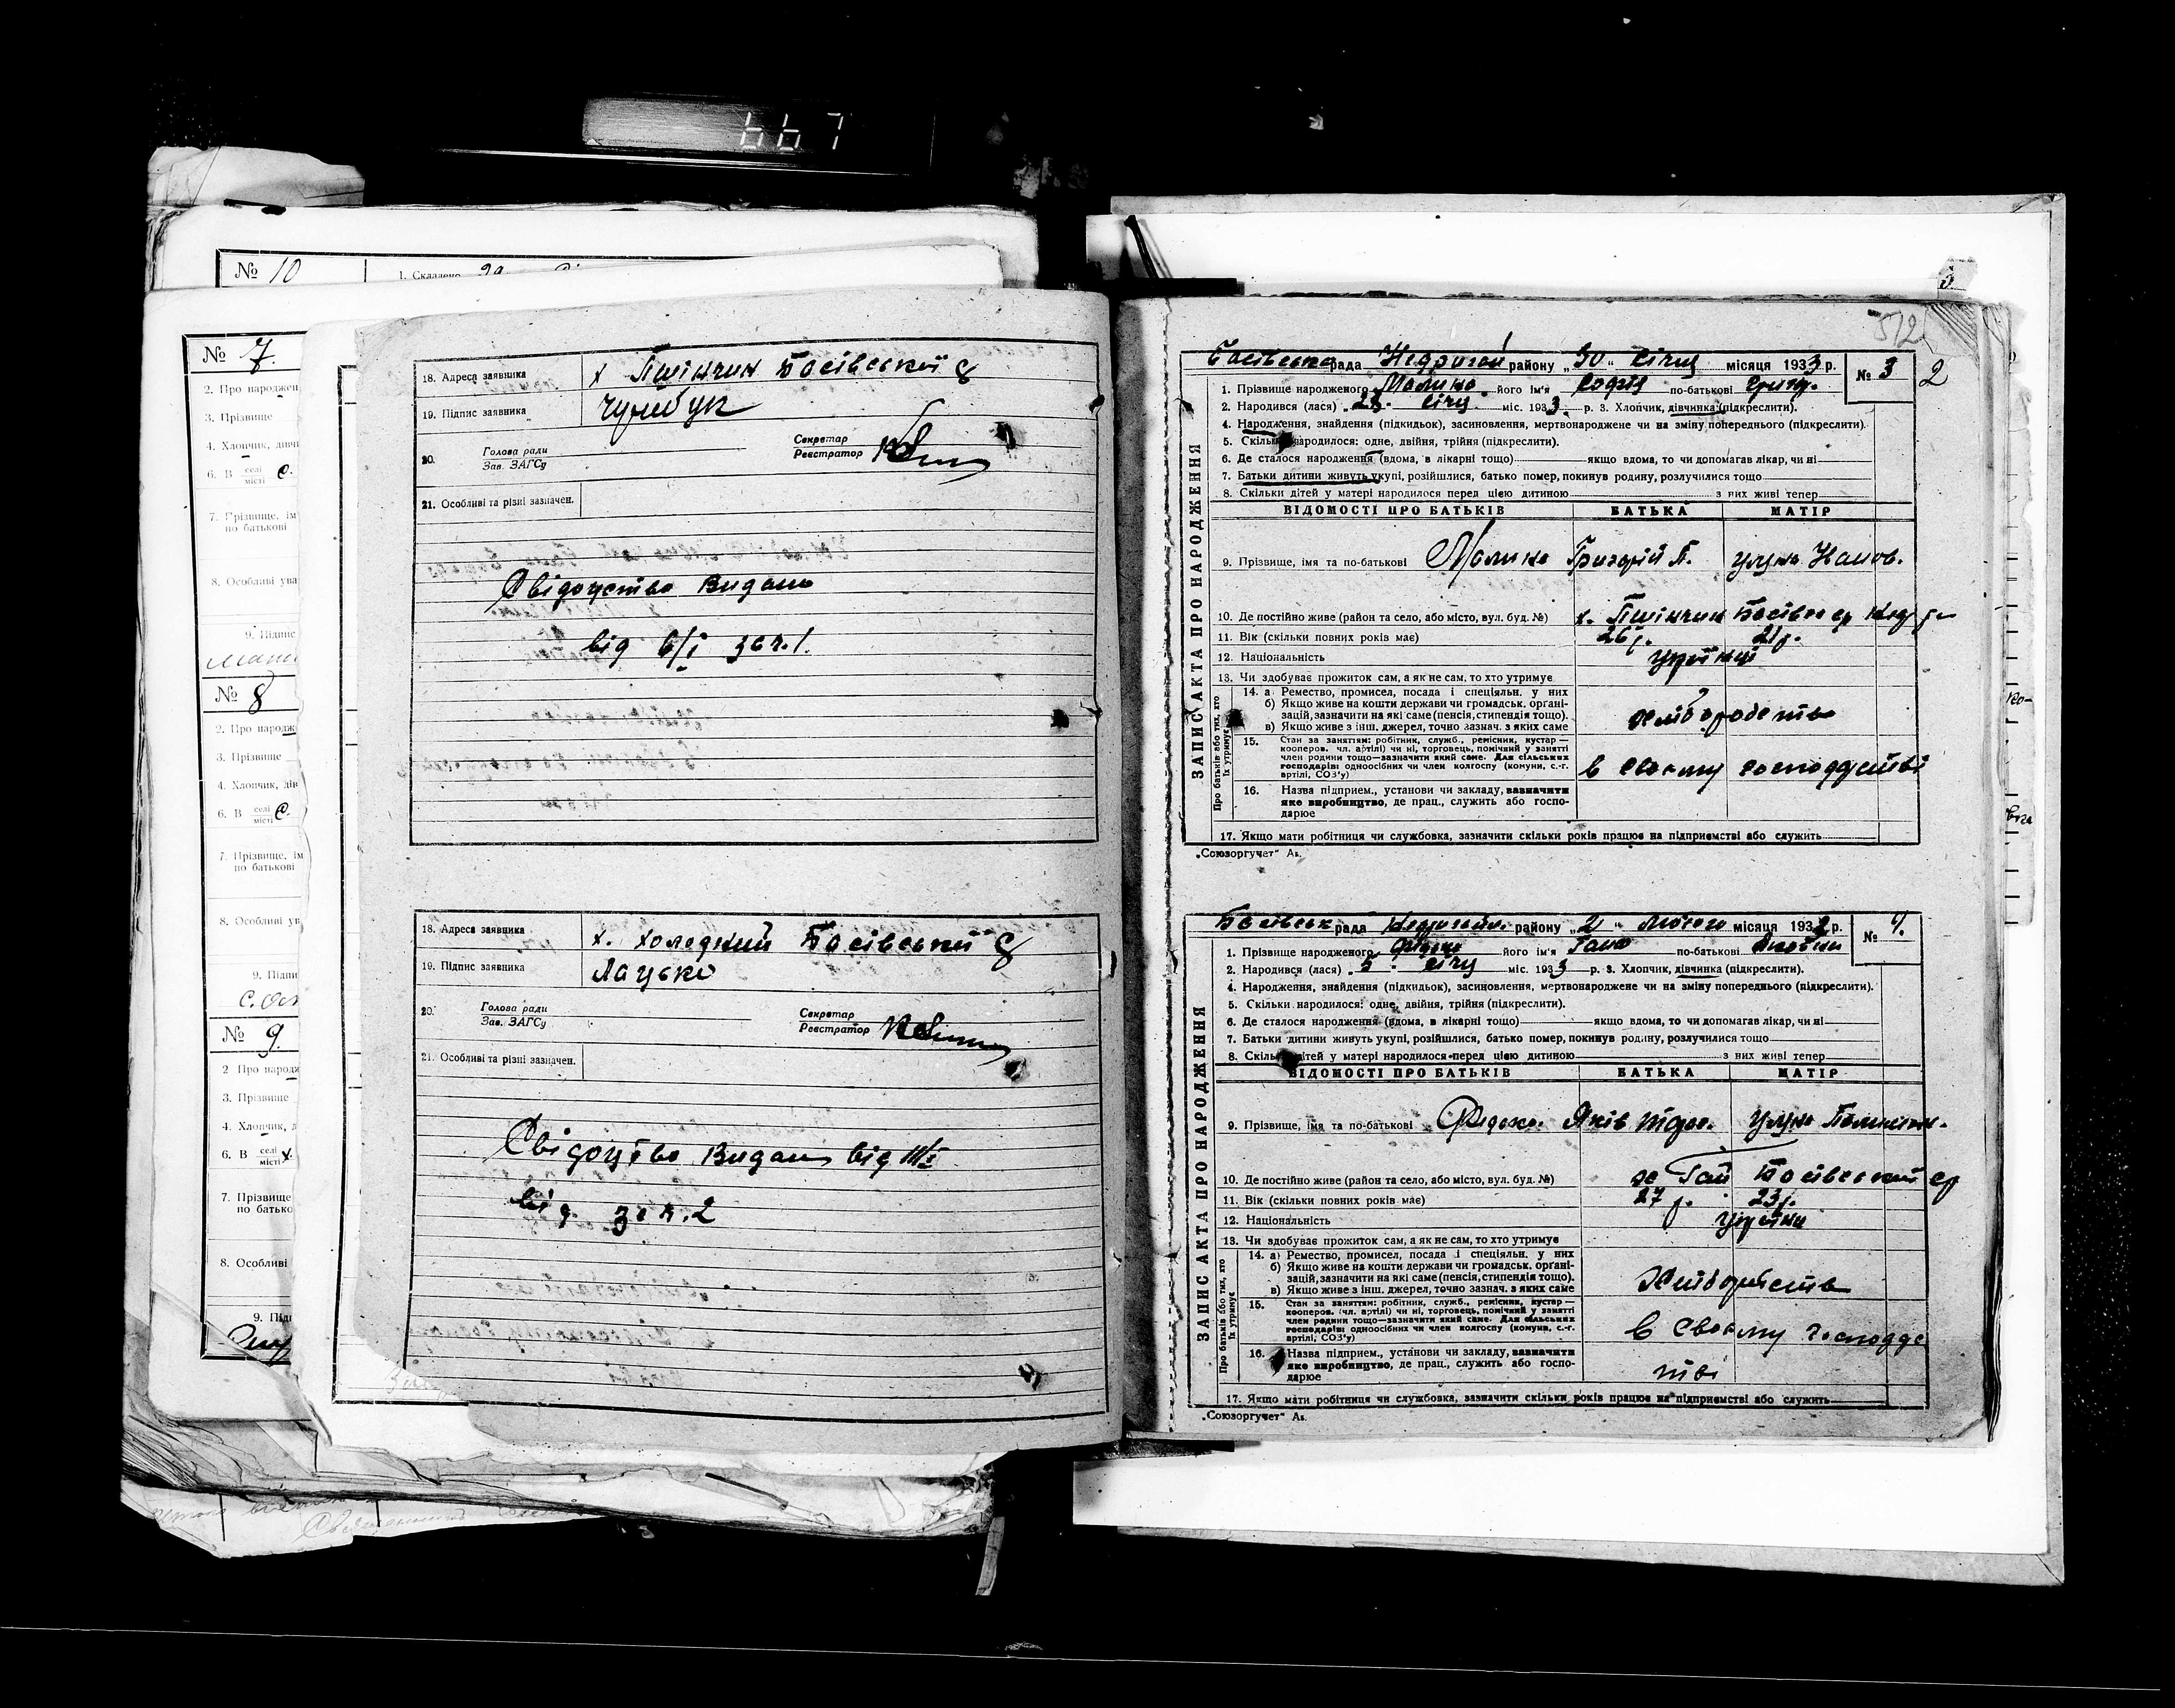 667
№ 10
1. Складено 29
№ 7.
2. Про народжен
3. Прізвище
4. Хлопчик, дівчи
6. В селі місті с.
7. Прізвище, ім
по батькові
8. Особливі ува
9. Підпис
№ 8
2. Про народж
3. Прізвище
4. Хлопчик, дів
6. В селі місті с.
7. Прізвище, ім
по батькові
8. Особливі ув
9. Підпи
№ 9.
2 Про народж
3. Прізвище
4. Хлопчик, д
6. В селі місті х.
7. Прізвище
по батько
8. Особливі
9. Підп
18. Адреса заявника х Пшінчин Басівської с
19. Підпис заявника
20. Голова ради Зав. ЗАГСу Секретар Реєстратор
21. Особливі та різні зазначен.
Свідоцтво Видано
від 6/I за ч. 1.
18. Адреса заявника х. Холодний Басівської с
19. Підпис заявника Лацько
20. Голова ради Зав. ЗАГСу Секретар Реєстратор
21. Особливі та різні зазначен.
Свідоцтво Видано від
від. за ч. 2
512
2
Басівська рада Недригай району „30“ січня місяця 1933 р. № 3
1. Прізвище народженого Малика його ім'я Софія по-батькові Григ.
2. Народився (лася) січ. міс. 1933 р. 3. Хлопчик, дівчинка (підкреслити).
4. Народження, знайдення (підкидьок), засиновлення, мертвонароджене чи на зміну попереднього (підкреслити).
5. Скільки народилося: одне, двійня, трійня (підкреслити).
6. Де сталося народження (вдома, в лікарні тощо) якщо вдома, то чи допомагав лікар, чи ні
7. Батьки дитини живуть укупі, розійшлися, батько помер, покинув родину, розлучилися тощо
8. Скільки дітей у матері народилося перед цією дитиною з них живі тепер
ЗАПИС АКТА ПРО НАРОДЖЕННЯ
ВІДОМОСТІ ПРО БАТЬКІВ БАТЬКА МАТІР
9. Прізвище, імя та по-батькові Малика Григорій П.
10. Де постійно живе (район та село, або місто, вул. буд. №) х. Пшінчин
11. Вік (скільки повних років має) 26 р. 21 р.
12. Національність українці
13. Чи здобуває прожиток сам, а як не сам, то хто утримує
Про батьків або тих, хто їх утримує
14. а Ремество, промисел, посада і спеціяльн. у них
б) Якщо живе на кошти держави чи громадськ. органі-
зацій, зазначити на які саме (пенсія, стипендія тощо).
в) Якщо живе з інш. джерел, точно зазнач. з яких саме
хліборобство
15. Стан за заняттям: робітник, служб., ремісник, кустар—
кооперов. чл. артілі) чи ні, торговець, помічний у занятті
член родини тощо—зазначити який саме. Для сільських
господарів: одноосібних чи член колгоспу (комуни, с.-г.
артілі, СОЗ'у)
в своєму господарстві
16. Назва підприєм., установи чи закладу, вазначити
яке виробництво, де прац., служить або госпо-
дарює
17. Якщо мати робітниця чи службовка, зазначити скільки років працює на підприємстві або служить
„Союзоргучет“ Ав.
рада району „2“ лютого місяця 1933 р. № 4.
1. Прізвище народженого його ім'я по-батькові
2. Народився (лася) 5 січ міс. 1933 р. 3. Хлопчик, дівчинка (підкреслити).
4. Народження, знайдення (підкидьок), засиновлення, мертвонароджене чи на зміну попереднього (підкреслити).
5. Скільки народилося: одне, двійня, трійня (підкреслити).
6. Де сталося народження (вдома, в лікарні тощо) якщо вдома, то чи допомагав лікар, чи ні
7. Батьки дитини живуть укупі, розійшлися, батько помер, покинув родину, розлучилися тощо
8. Скільки дітей у матері народилося перед цією дитиною з них живі тепер
ЗАПИС АКТА ПРО НАРОДЖЕННЯ
ВІДОМОСТІ ПРО БАТЬКІВ БАТЬКА МАТІР
9. Прізвище, імя та по-батькові Яків
10. Де постійно живе (район та село, або місто, вул. буд. №) х Гай Басівської ср
11. Вік (скільки повних років має) 27 р. 23 р.
12. Національність
13. Чи здобуває прожиток сам, а як не сам, то хто утримує
Про батьків або тих, хто їх утримує
14. а) Ремество, промисел, посада і спеціяльн. у них
б) Якщо живе на кошти держави чи громадськ. органі-
зацій, зазначити на які саме (пенсія, стипендія тощо).
в) Якщо живе з інш. джерел, точно зазнач. з яких саме
15. Стан за заняттям: робітник, служб., ремісник, кустар—
кооперов. (чл. артілі) чи ні, торговець, помічний у занятті
член родини тощо—зазначити який саме. Для сільських
господарів: одноосібних чи член колгоспу (комуни, с.-г.
артілі, СОЗ'у)
в своєму господарс
тві
16. Назва підприєм., установи чи закладу, вазначити
яке виробництво, де прац., служить або госпо-
дарює
17. Якщо мати робітниця чи службовка, зазначити скільки років працює на підприємстві або служить
„Союзоргучет“ Ав.